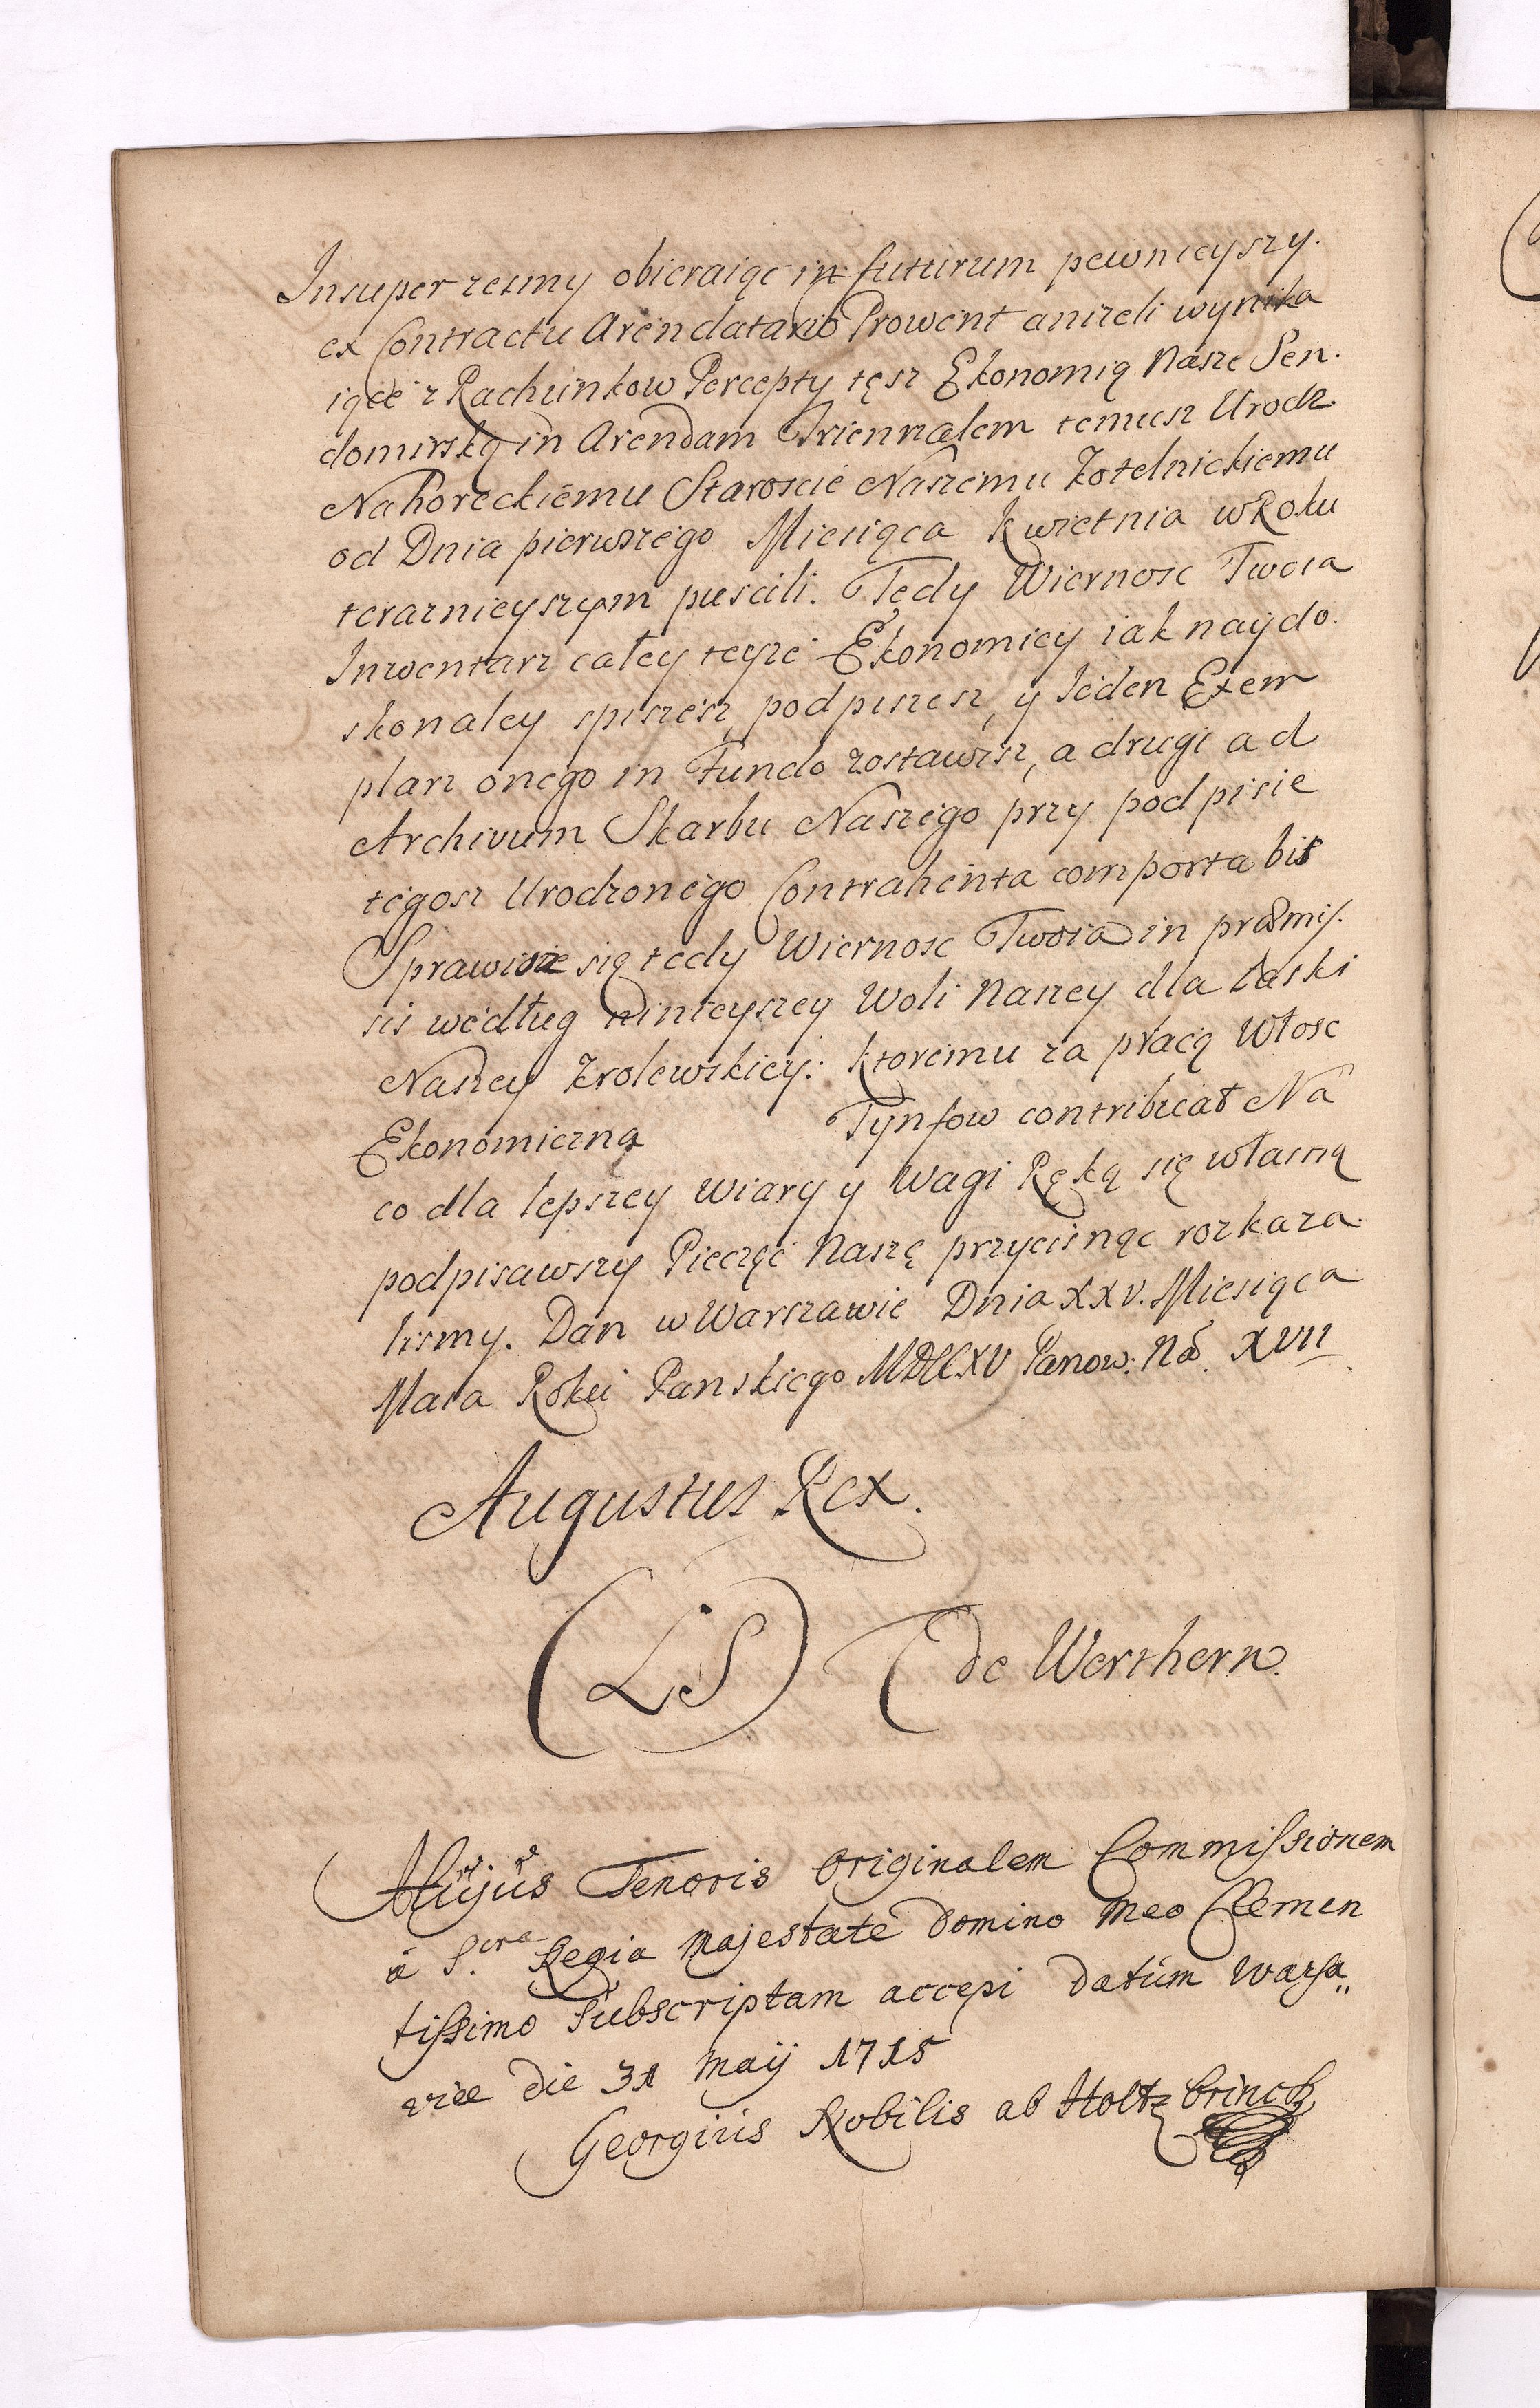 Insuper zesmy obieraiąc in futurum pewnieyszy.
ex Contractu Arendatario Prowent anizeli wynika
iące z Rachunkow Percepty tęsz Ekonomią Nasze Sen.
domirską in Arendam Triennalem temusz Urodz.
Nahoreckiemu Staroscie Naszemu Kotelnickiemu
od Dnia pierwszego Miesiąca Kwietnia w Roku
teraznieyszym puscili. Tędy Wiernosc Twoia
Inwentarz całey teyze Ekonomiey iak naydo.
skonaley spiszesz, podpiszesz, y Ieden Exem
plarz onego in Fundo zostawisz, a drugi ad
Archivum Skarbu Naszego przy podpisie
tegosz Urodzonego Contrahenta comportabit
Sprawisze się tedy Wiernosc Twoia in præmis.
sis według ninieyszey Woli Naszey dla Łaski
Naszey Krolewskiey: ktoremu za płacą Włosc
Ekonomiczną Tynfow contribuat Na
co dla lepszey wiary y Wagi Ręką się własną
podpisawszy Pieczęć Naszę przycisnąc rozkaza.
lismy. Dan w Warszawie Dnia XXV. Miesiąca
Maia Roku Panskiego MDCCXV Panow: Nã. XVII
Augustus Rex.
(LS) de Werthern.
Hujus Tenoris Originalem Commissionem
á S.cra Regia Majestate Domino Meo Clemen
tissimo Subscriptam accepi Datum Warsa„
viæ die 31 Maij 1715
Georgius Nobilis ab Holtz Brinck